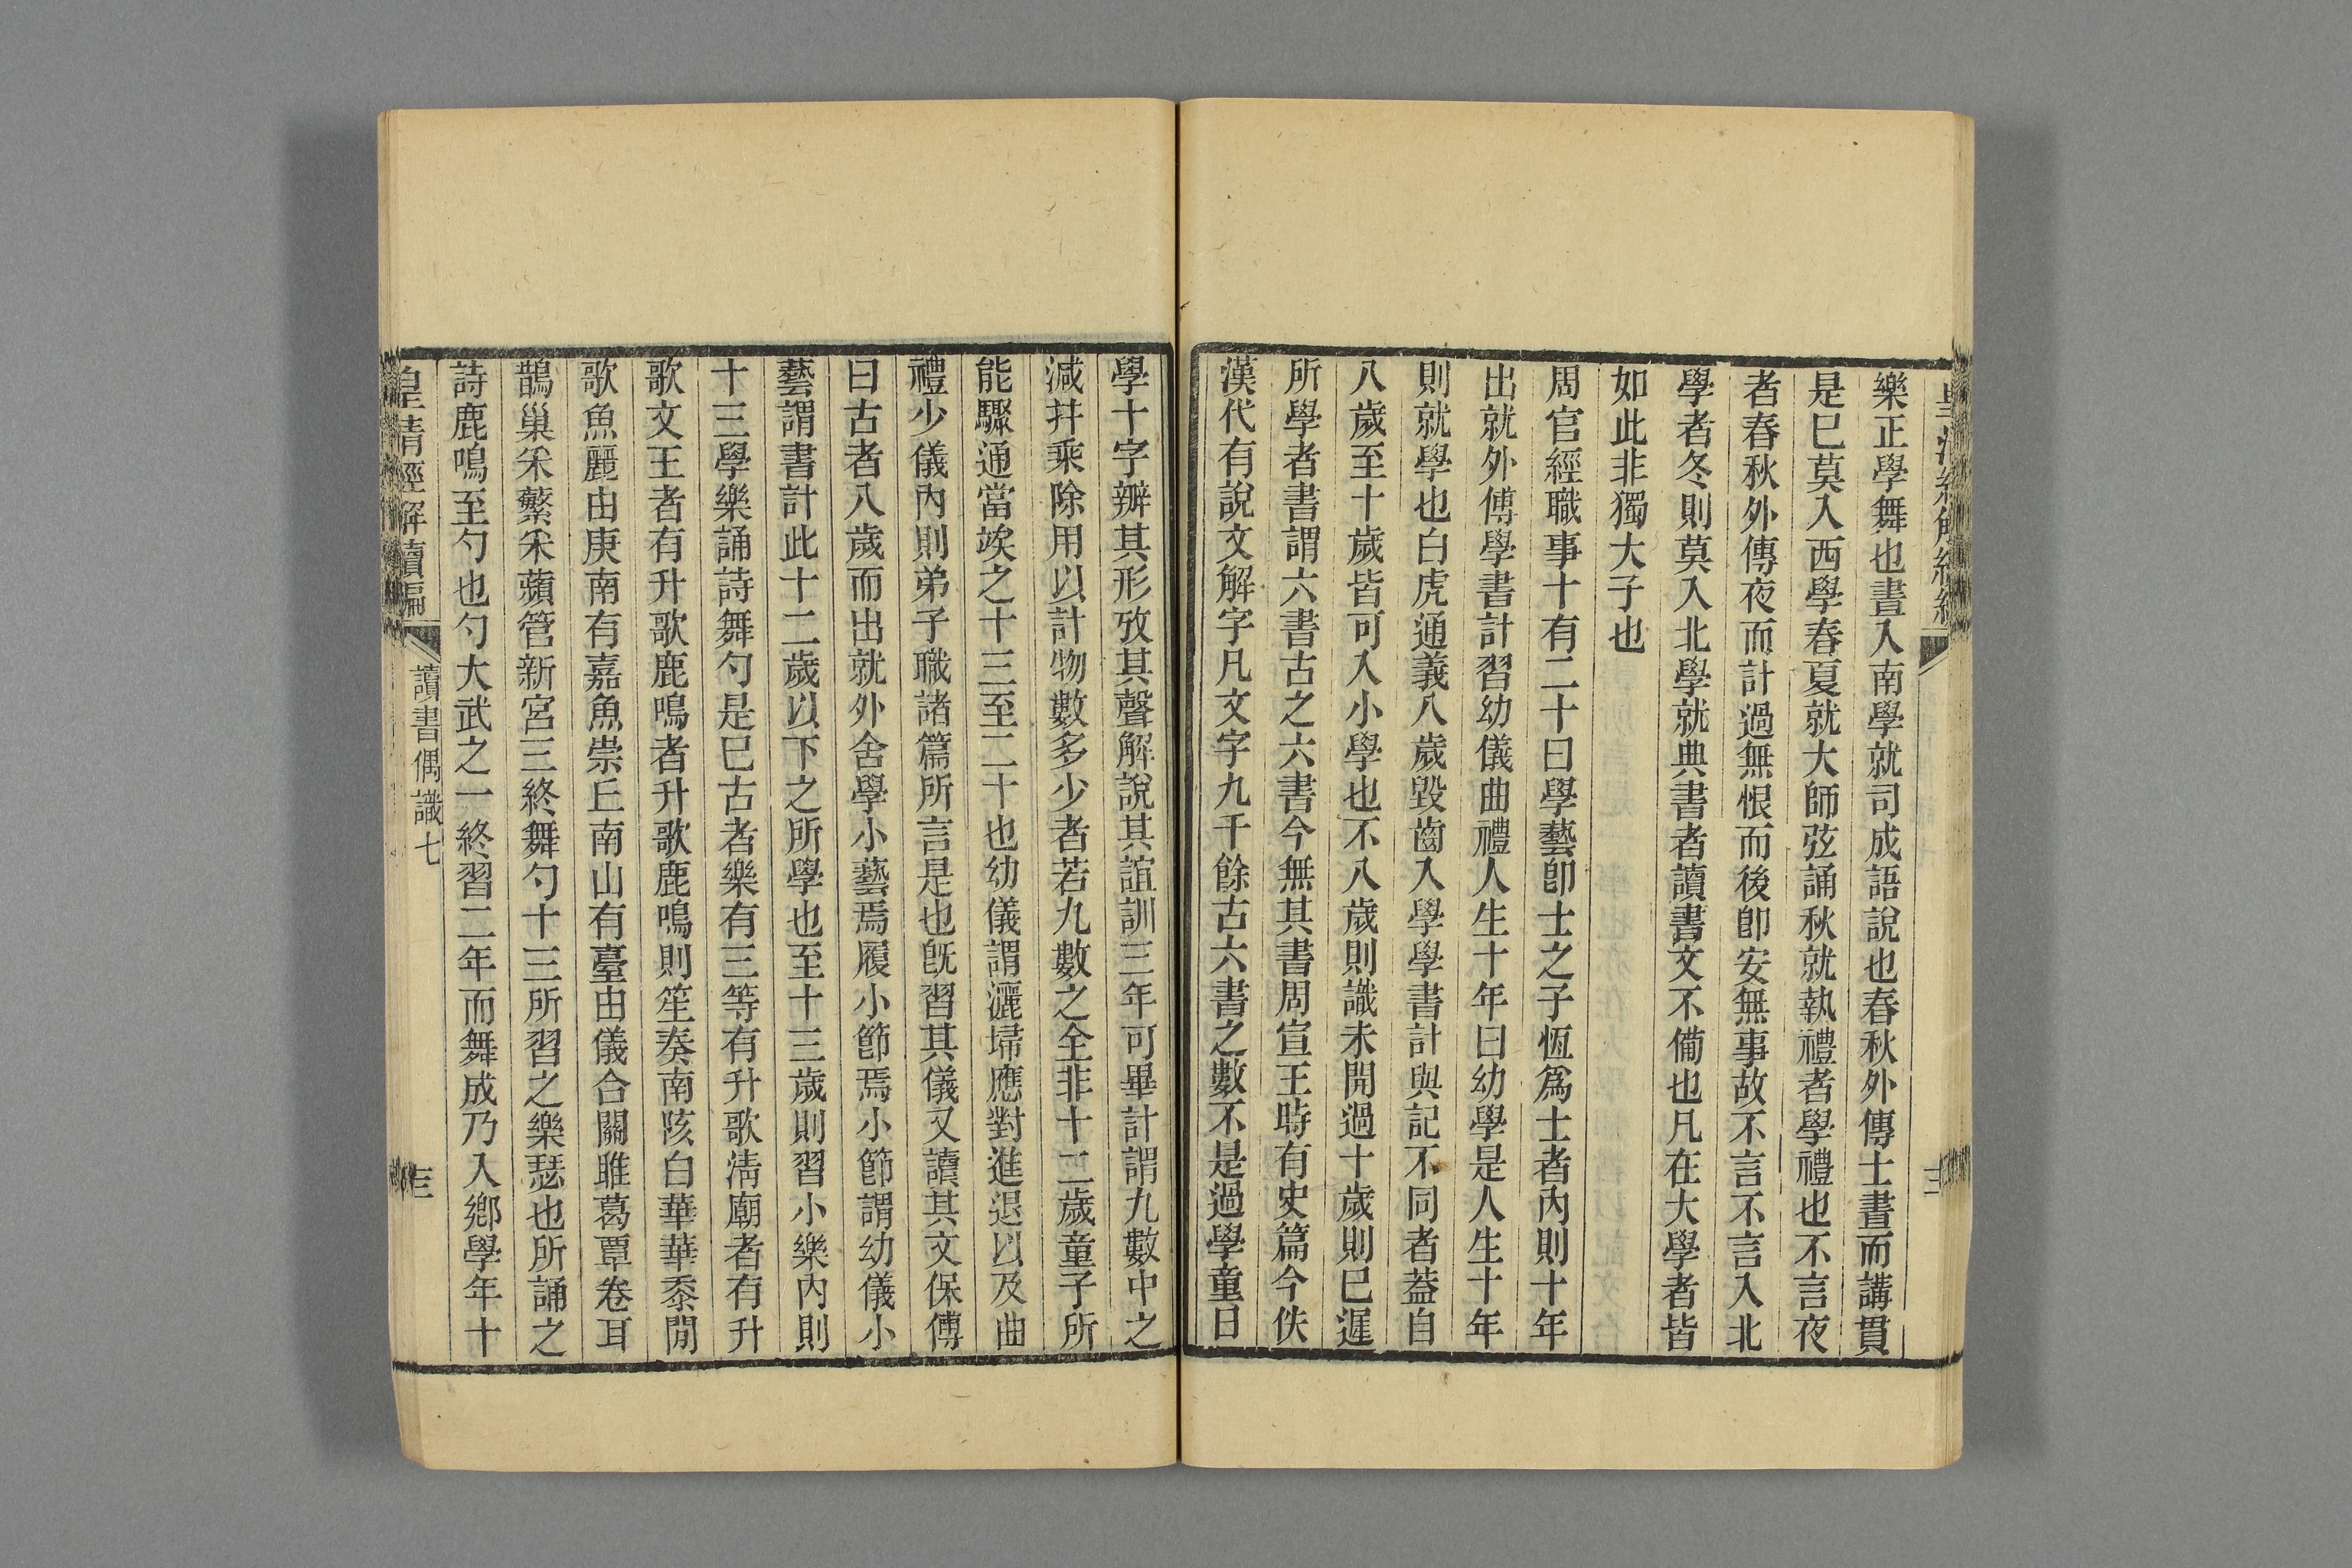 樂正學舞也晝入南學就司成語說也春秋外傳士晝而講貫
是巳莫入西學春夏就大師弦誦秋就執禮者學禮也不言夜
者春秋外傳夜而計過無恨而後卽安無事故不言不言入北
學者冬則莫入北學就典書者讀書文不僃也凡在大學者皆
如此非獨大子也
周官經職事十有二十曰學藝卽士之子恆爲士者內則十年
出就外傅學書計習幼儀曲禮人生十年曰幼學是人生十年
則就學也白虎通義八歲毀齒入學學書計與記不同者葢自
八歲至十歲皆可入小學也不八歲則識未開過十歲則巳遲
所學者書謂六書古之六書今無其書周宣王時有史篇今佚
漢代有說文解字凡文字九千餘古六書之數不是過學童日
學十字辧其形攷其聲解說其誼訓三年可畢計謂九數中之
減幷乘除用以計物數多少者若九數之全非十二歲童子所
能驟通當竢之十三至二十也幼儀謂灑埽應對進退以及曲
禮少儀內則弟子職諸篇所言是也旣習其儀又讀其文保傅
曰古者八歲而出就外舍學小藝焉履小節焉小節謂幼儀小
藝謂書計此十二歲以下之所學也至十三歲則習小樂內則
十三學樂誦詩舞勺是巳古者樂有三等有升歌淸廟者有升
歌文王者有升歌鹿鳴者升歌鹿鳴則笙奏南陔白華華黍閒
歌魚麗由庚南有嘉魚崇丘南山有臺由儀合關雎葛覃卷耳
鵲巢釆蘩釆蘋管新宮三終舞勺十三所習之樂瑟也所誦之
詩鹿鳴至勺也勺大武之一終習二年而舞成乃入鄕學年十
皇淸經解續編
讀書偶識七